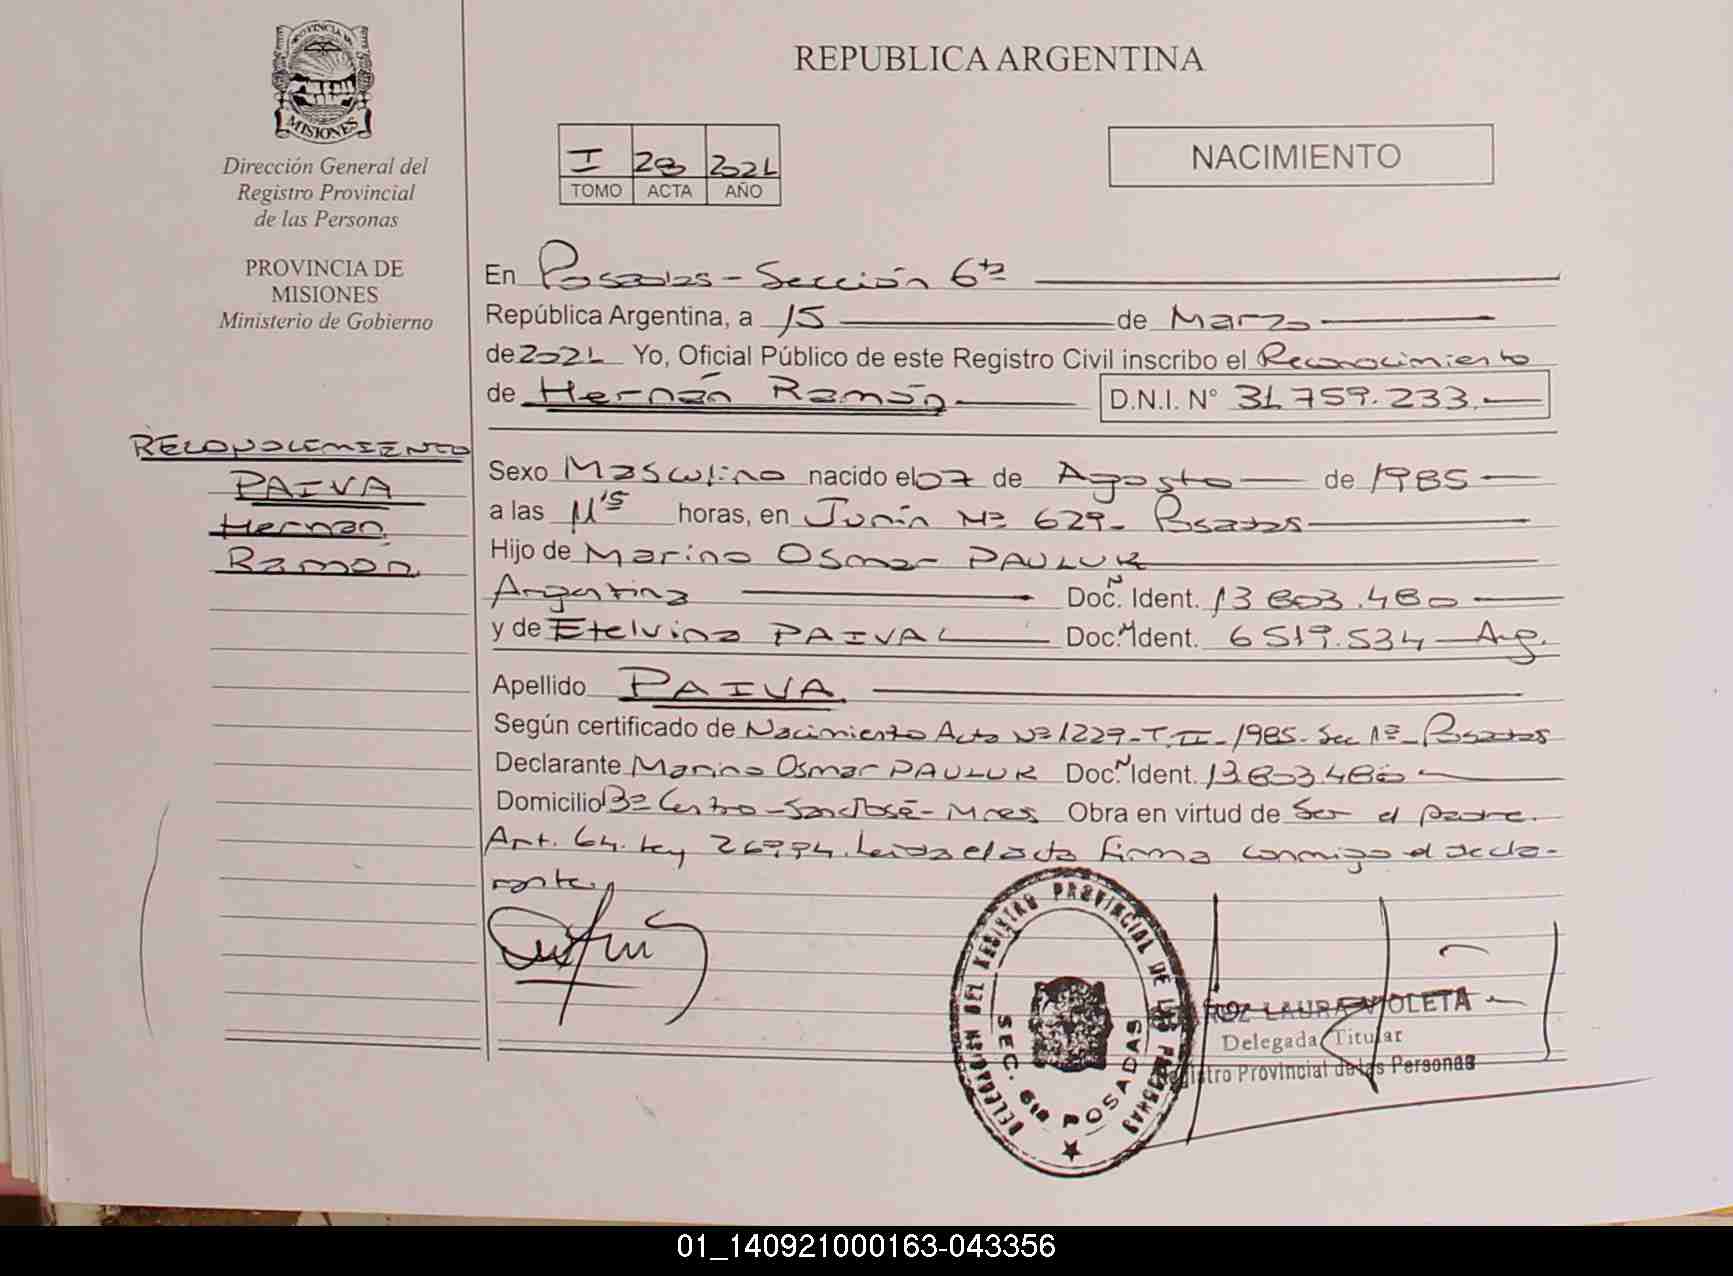 PROVINCIA DE
MISIONES
Dirección General del
Registro Provincial
de las Personas
PROVINCIA DE
MISIONES
Ministerio de Gobierno
RECONOCIMIENTO
PAIVA
Hernán
Ramón
REPUBLICA ARGENTINA
I 28 2021
TOMO ACTA AÑO
NACIMIENTO
En Posadas - Sección 6ta
República Argentina, a 15 de Marzo
de 2021 Yo, Oficial Público de este Registro Civil inscribo el Reconocimiento
de Hernán Ramón D.N.I. N° 31.759.233.
Sexo Masculino nacido el 07 de Agosto de 1985
a las 11'5 horas, en Junín Nº 629- Posadas
Hijo de Marino Osmar PAULUK
Argentina Doc. Ident. 13.803.480
y de Etelvina PAIVA Doc. Ident. 6.519.534 - Arg.
Apellido PAIVA
Según certificado de Nacimiento Acta Nº 1229-T.II-1985-Sec 1ª-Posadas
Declarante Marino Osmar PAULUK Doc. Ident. 13.803.480
Domicilio Bº Centro - San José - Mnes Obra en virtud de Ser el padre.
Art. 64. Ley 26994. Leida el acta firma conmigo el decla-
rante.
DELEGACION DEL REGISTRO PROVINCIAL DE LAS PERSONAS
SEC. 6ta POSADAS
LAURA VIOLETA
Delegada Titular
Registro Provincial de las Personas
01_140921000163-043356